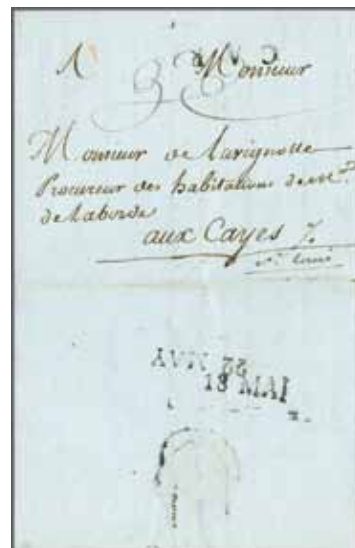 A Monsieur
Monsieur de Lavignolle
Procureur des habitations de Mr.
de Laborde
aux Cayes
St. Louis
18 MAI